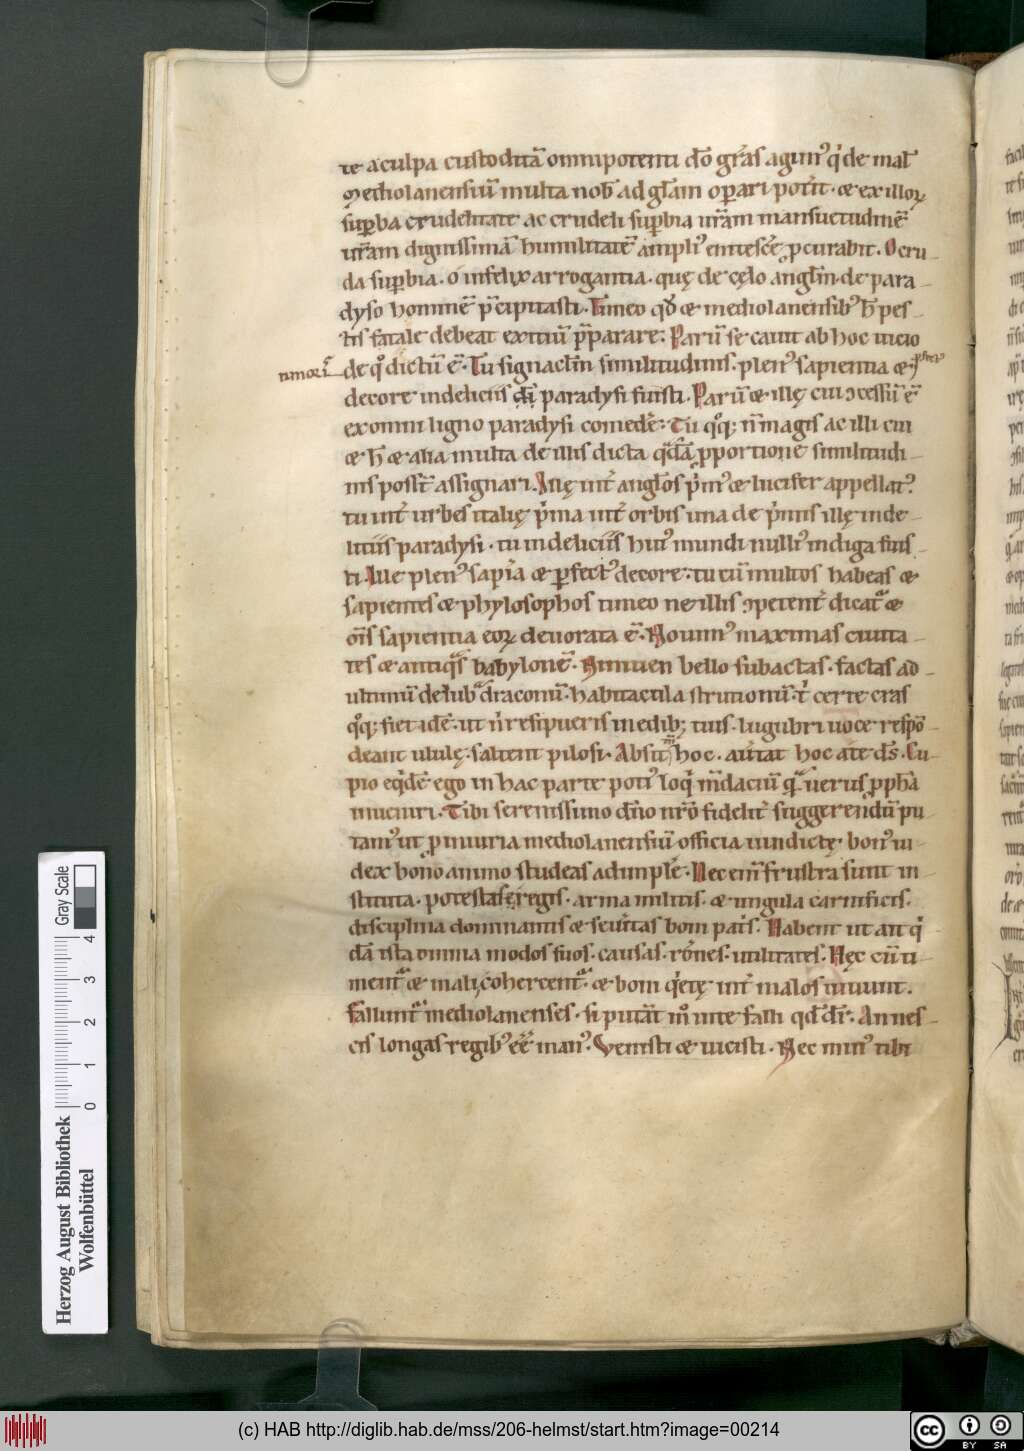 te a culpa custoditā omnipotenti dō grãs agun᷒ qͥ de mal̄
Mediolanensiū multa nob̄ ad gl̄am oꝑari potͥit · & ex illoꝝ
suꝑba crudelitate ac crudeli suꝑbia ur̄am mansuetudinē
ur̄am dignissimā humilitatē ampli᷒ enitescē ꝓcurabit · O cru-
da suꝑbia · o infelix arrogantia · quę de cęlo angl̄m · de para
dyso hominē p̄cipitasti · Timeo qd̄ & mediolanensib᷒ h̄ pes-
tis fatale debeat exitiū p̄parare · Parū se cauit ab hoc uicio
de qͦ dictū ē · Tu signacl̄m similitudinis · plen᷒ sapientia &
decore in deliciis paradysi fuisti · Parū & ille cui ↄcessū ē
ex omni ligno paradysi comedē · Tu qͦqꝫ n̄ magis ac illi cui
& h̄ & alia multa de illis dicta qͣdā ꝓportione similitudi-
nis possͭ assignari · Ille int̄ angl̄os pͥm᷒ & lucifer appellat᷒
tu int̄ urbes italię pͥma int̄ orbis una de pͥmis ille in de-
litiis paradysi · tu in deliciis hui᷒ mundi nulli᷒ indiga fuis-
ti Ille plen᷒ sapīa & ꝑfect᷒ decore · tu cū multos habeas &
sapientes & phylosophos timeo ne illis ↄpetent̄ dicatͣ &
oīs sapientia eoꝝ deuorata ē · Nouim᷒ maximas ciuita-
tes & antiqͣs babylonē · Niniuen bello subactas · factas ad
ultimū delubͣ draconū · habitacula strutionū · t̄ certe eras
qͦqꝫ fiet idē · ut nͥ resipueris in edibꝫ tuis · lugubri uoce respō
deant ululę · saltent pilosi · Absit hoc · aūtat hoc a te dͨs · Cu-
pio eqͥdē ego in hac parte poti᷒ loqͥ m̄daciū qͣ uerus ꝓph̄a
inueniri · Tibi serenissimo dn̄o nr̄o fidelit̄ suggerendū pu
tam᷒ ut ꝓ iniuria mediolanensiū officia uindictę · bon᷒ iu-
dex bono animo studeas adimplē · Nec em̄ frustra sunt in-
stituta · potestas regis · arma militis · & ungula carnificis ·
disciplina dominantis & seuͥitas boni patͥs · Habent ut ait qͥ
dā ista omnia modos suos · causas · rōnes · utilitates · Nęc cū ti-
mentͣ & mali cohercentͣ & boni qͥetę int̄ malos uiuunt ·
Falluntͣ mediolanenses · si putāt in͛ uite falli qd̄ dr̄ · An nes-
cis longas regib᷒ eē man᷒ · Venisti & uicisti · Nec min᷒ tibi
Herzog August Bibliothek
Wolfenbüttel
0 1 2 3 4
Gray Scale
(c) HAB http://diglib.hab.de/mss/206-helmst/start.htm?image=00214
cc BY SA